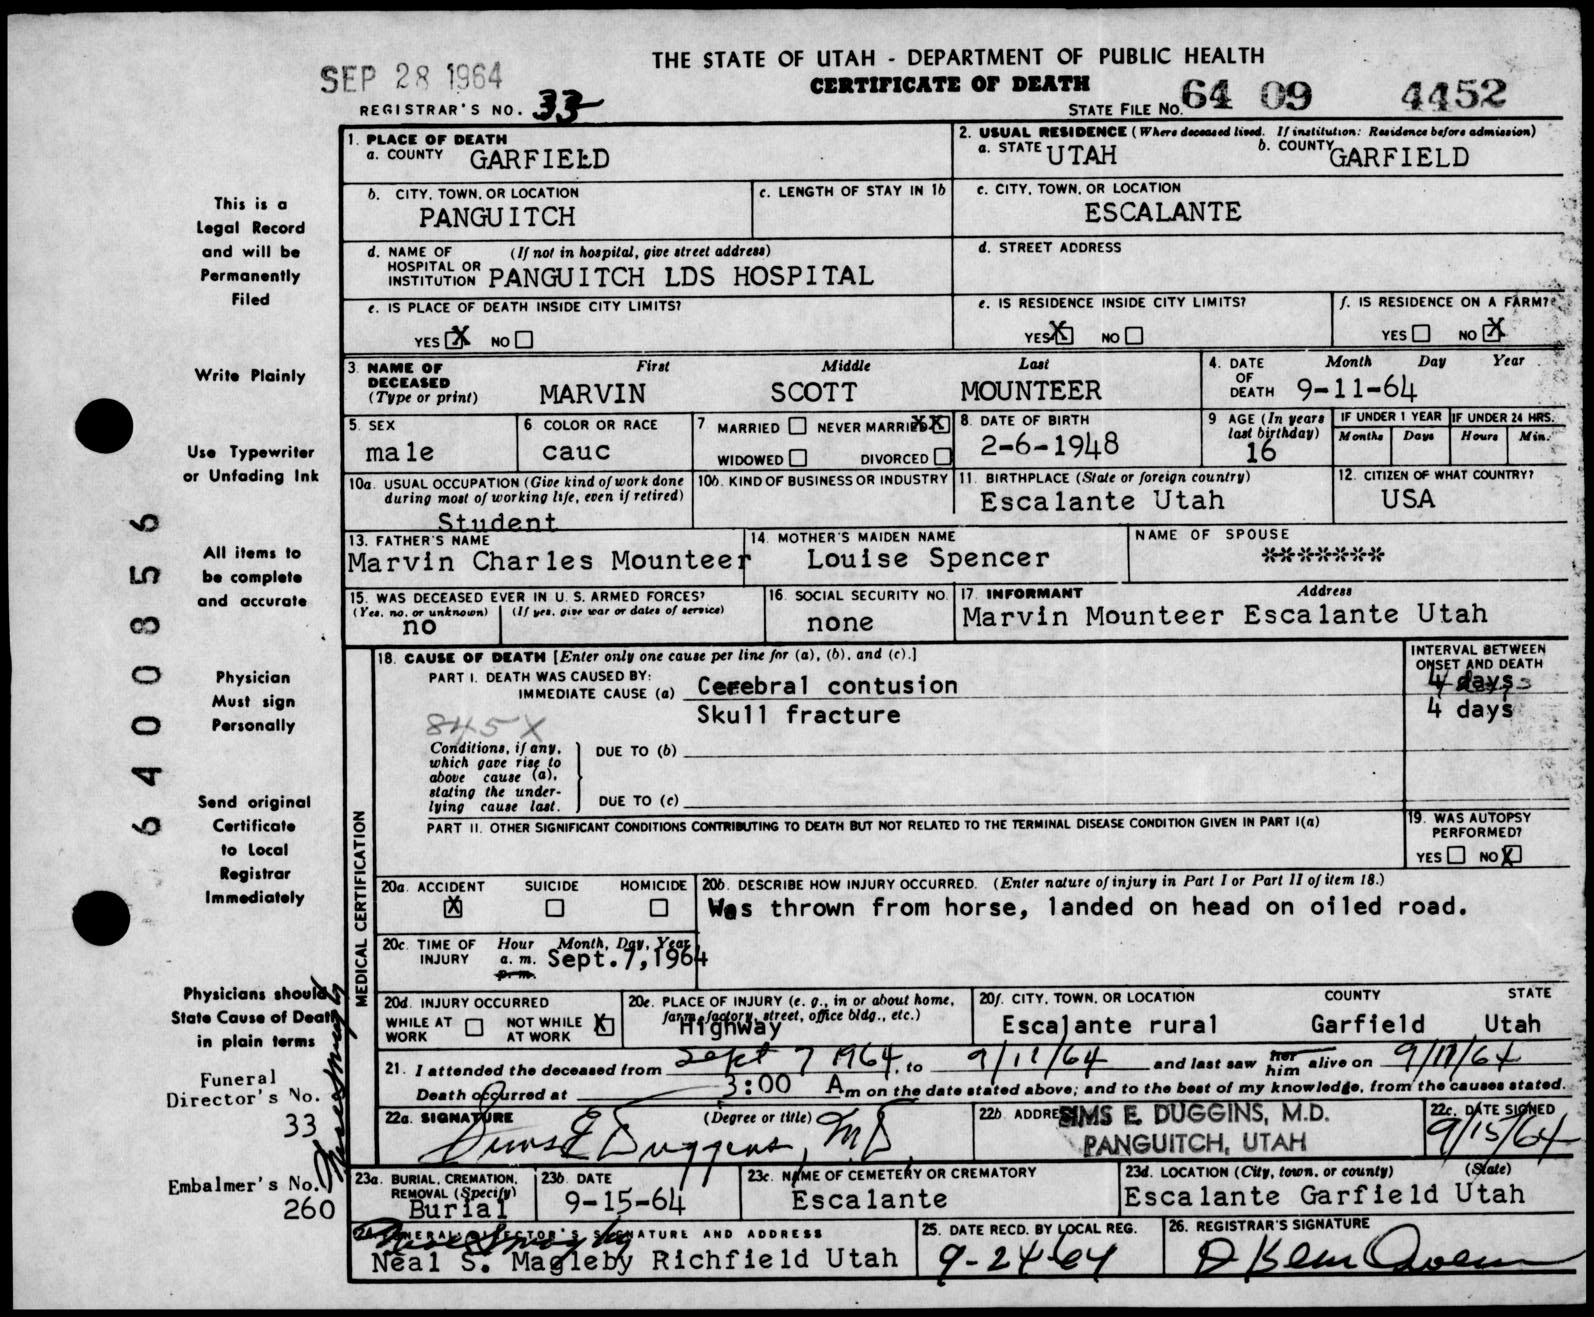 THE STATE OF UTAH - DEPARTMENT OF PUBLIC HEALTH
SEP 28 1964
CERTIFICATE OF DEATH
REGISTRAR'S NO. 33
STATE FILE NO. 64 09 4452
1. PLACE OF DEATH
a. COUNTY GARFIELD
2. USUAL RESIDENCE (Where deceased lived. If institution: Residence before admission)
a. STATE UTAH b. COUNTY GARFIELD
b. CITY, TOWN, OR LOCATION
PANGUITCH
c. LENGTH OF STAY IN 1b
c. CITY, TOWN, OR LOCATION
ESCALANTE
d. NAME OF HOSPITAL OR INSTITUTION (If not in hospital, give street address)
PANGUITCH LDS HOSPITAL
d. STREET ADDRESS
e. IS PLACE OF DEATH INSIDE CITY LIMITS?
YES X NO
e. IS RESIDENCE INSIDE CITY LIMITS?
YES X NO
f. IS RESIDENCE ON A FARM?
YES NO X
3. NAME OF DECEASED (Type or print)
First Middle Last
MARVIN SCOTT MOUNTEER
4. DATE OF DEATH Month Day Year
9-11-64
5. SEX
male
6. COLOR OR RACE
cauc
7 MARRIED NEVER MARRIED XX
WIDOWED DIVORCED
8. DATE OF BIRTH
2-6-1948
9 AGE (In years last birthday)
16
IF UNDER 1 YEAR IF UNDER 24 HRS.
Months Days Hours Min.
10a. USUAL OCCUPATION (Give kind of work done during most of working life, even if retired)
Student
10b. KIND OF BUSINESS OR INDUSTRY
11. BIRTHPLACE (State or foreign country)
Escalante Utah
12. CITIZEN OF WHAT COUNTRY?
USA
13. FATHER'S NAME
Marvin Charles Mounteer
14. MOTHER'S MAIDEN NAME
Louise Spencer
NAME OF SPOUSE
*******
15. WAS DECEASED EVER IN U. S. ARMED FORCES?
(Yes, no, or unknown) (If yes, give war or dates of service)
no
16. SOCIAL SECURITY NO.
none
17. INFORMANT Address
Marvin Mounteer Escalante Utah
MEDICAL CERTIFICATION
18. CAUSE OF DEATH [Enter only one cause per line for (a), (b), and (c).]
INTERVAL BETWEEN ONSET AND DEATH
PART I. DEATH WAS CAUSED BY:
IMMEDIATE CAUSE (a) Cerebral contusion 4 days
Skull fracture 4 days
845X
Conditions, if any, which gave rise to above cause (a), stating the underlying cause last.
DUE TO (b)
DUE TO (c)
PART II. OTHER SIGNIFICANT CONDITIONS CONTRIBUTING TO DEATH BUT NOT RELATED TO THE TERMINAL DISEASE CONDITION GIVEN IN PART I(a)
19. WAS AUTOPSY PERFORMED?
YES NO X
20a. ACCIDENT SUICIDE HOMICIDE
X
20b. DESCRIBE HOW INJURY OCCURRED. (Enter nature of injury in Part I or Part II of item 18.)
Was thrown from horse, landed on head on oiled road.
20c. TIME OF INJURY Hour Month, Day, Year
a. m. p. m. Sept. 7, 1964
20d. INJURY OCCURRED
WHILE AT WORK NOT WHILE AT WORK X
20e. PLACE OF INJURY (e. g., in or about home, farm, factory, street, office bldg., etc.)
Highway
20f. CITY, TOWN, OR LOCATION COUNTY STATE
Escalante rural Garfield Utah
21. I attended the deceased from Sept 7 1964, to 9/11/64 and last saw her him alive on 9/11/64
Death occurred at 3:00 A m on the date stated above; and to the best of my knowledge, from the causes stated.
22a. SIGNATURE (Degree or title)
Sims E Duggins, MD
22b. ADDRESS
SIMS E. DUGGINS, M.D.
PANGUITCH, UTAH
22c. DATE SIGNED
9/15/64
23a. BURIAL, CREMATION, REMOVAL (Specify)
Burial
23b. DATE
9-15-64
23c. NAME OF CEMETERY OR CREMATORY
Escalante
23d. LOCATION (City, town, or county) (State)
Escalante Garfield Utah
24. FUNERAL DIRECTOR'S SIGNATURE AND ADDRESS
Neal S. Magleby Richfield Utah
25. DATE RECD. BY LOCAL REG.
9-24-64
26. REGISTRAR'S SIGNATURE
This is a
Legal Record
and will be
Permanently
Filed
Write Plainly
Use Typewriter
or Unfading Ink
All items to
be complete
and accurate
Physician
Must sign
Personally
Send original
Certificate
to Local
Registrar
Immediately
Physicians should
State Cause of Death
in plain terms
Funeral
Director's No.
33
Embalmer's No.
260
6400856